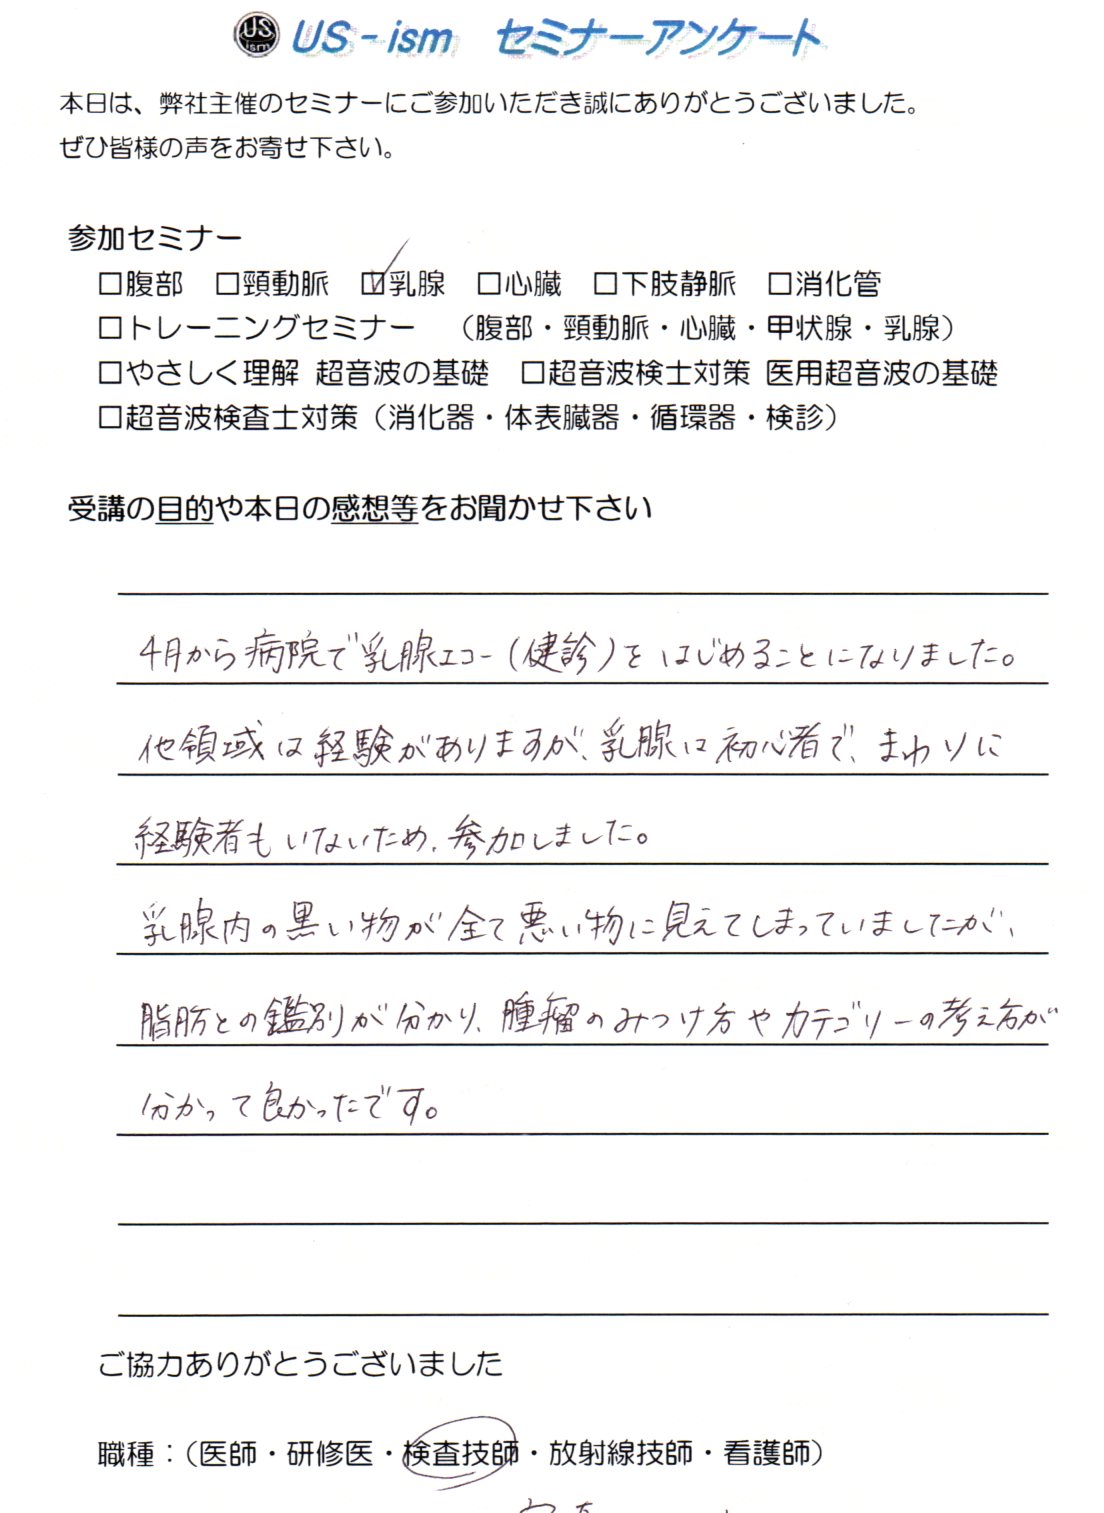 US ism US-ism セミナーアンケート
本日は、弊社主催のセミナーにご参加いただき誠にありがとうございました。
ぜひ皆様の声をお寄せ下さい。
参加セミナー
□腹部 □頸動脈 ☑乳腺 □心臓 □下肢静脈 □消化管
□トレーニングセミナー （腹部・頸動脈・心臓・甲状腺・乳腺）
□やさしく理解 超音波の基礎 □超音波検士対策 医用超音波の基礎
□超音波検査士対策（消化器・体表臓器・循環器・検診）
受講の目的や本日の感想等をお聞かせ下さい
4月から病院で乳腺エコー（健診）をはじめることになりました。
他領域は経験がありますが、乳腺は初心者で、まわりに
経験者もいないため、参加しました。
乳腺内の黒い物が全て悪い物に見えてしまっていましたが、
脂肪との鑑別が分かり、腫瘤のみつけ方やカテゴリーの考え方が
分かって良かったです。
ご協力ありがとうございました
職種：（医師・研修医・検査技師・放射線技師・看護師）